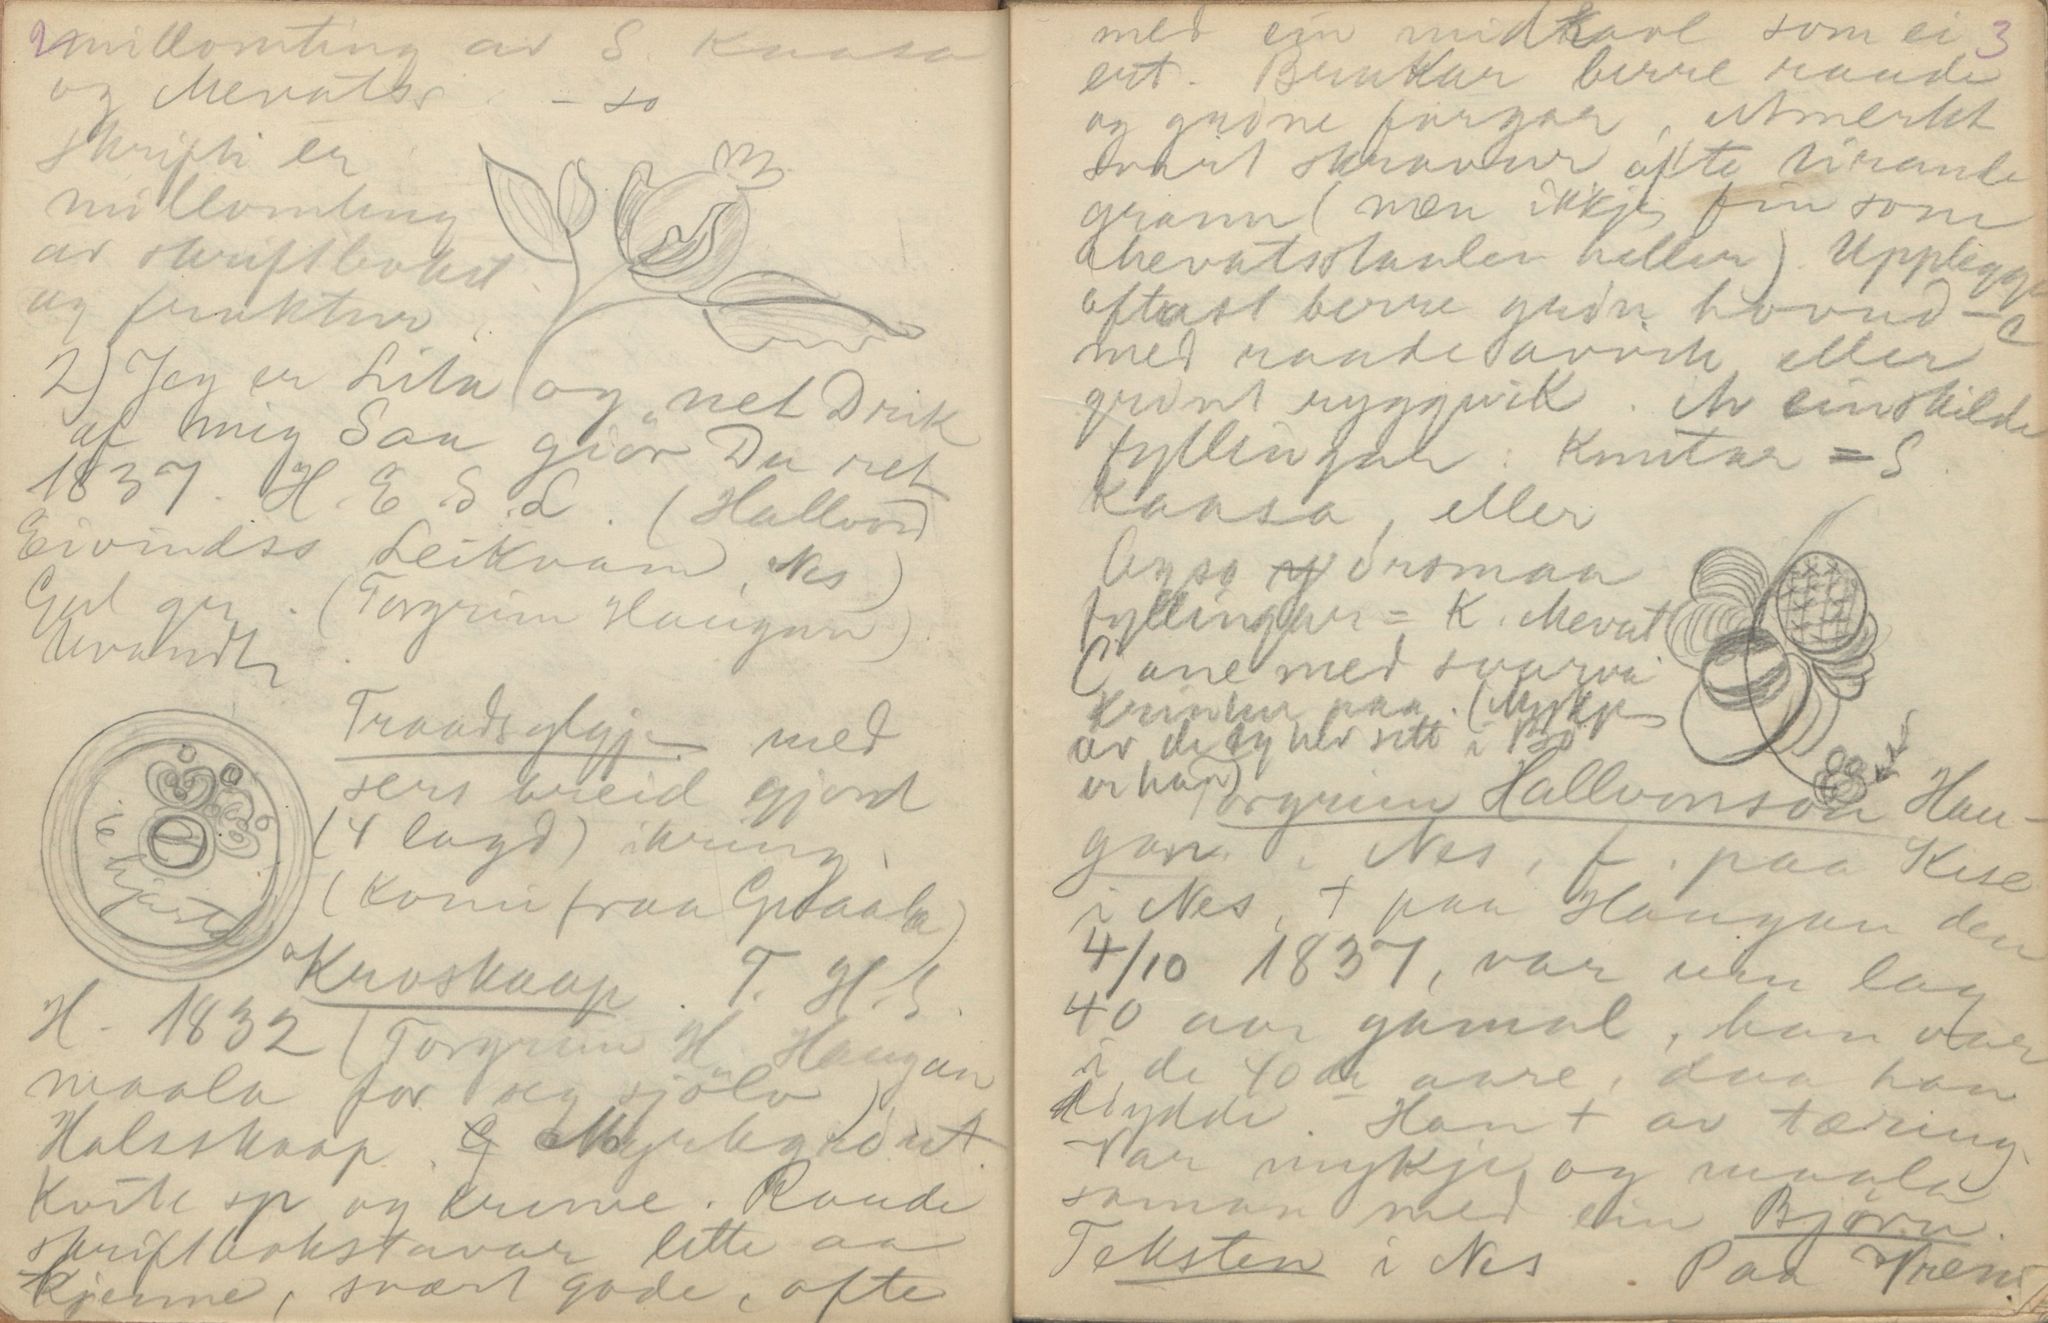 2 millomting av S. Kaasa
og Mevatss - so
skrifti er
millomting
av skriftbokst.
og fraktur.
2) Jeg er Lita og net Drik
af mig Saa giör Du ret
1837. H. E. S. L. (Hallvord
Eivindss Leikvam, Nes)
Gul gr. (Torgrim Haugan).
Uvandt
Traadsylgje med
sers breid gjord
(4 lagd) ikring.
(Komi fraa Graata)
ic hjarta
Kroskaap. T. H. S.
H. 1832 (Torgrim H. Haugan
maala for seg sjölv)
Halsskaap. Myrkgrönt.
Kvite sp og krune. Raude
skriftbokstavar lette aa
kjenne, svært gode, ofte
3
med ein midkavl som ei
ert. Brukar berre raude
og gröne fargar, utmerkt
svart skravur ofte
grann (men ikkje fin som
Mevatsstaalen heller). Upplegg
oftast berre grön hovud-
med raude avvik eller
grönt ryggvik. Av einskilde
fyllingar: Knutar = S.
Kaasa, eller
Ogso dromaa
fyllingar = K. Mevat
C ane med svarva
krintur paa. (Mykje
av de eg hev sett i Bö
er han)
Torgrim Hallvorson Hau-
gan i Nes, f. paa Kise
i Nes, + paa Haugan den
4/10 1837, var um lag
40 aar gamal, han var
i de 40de aare, daa han
döydde. Han + av tæring.
Var mykje og maala
saman med ein Björn
Teksten i Nes. Paa Vreim